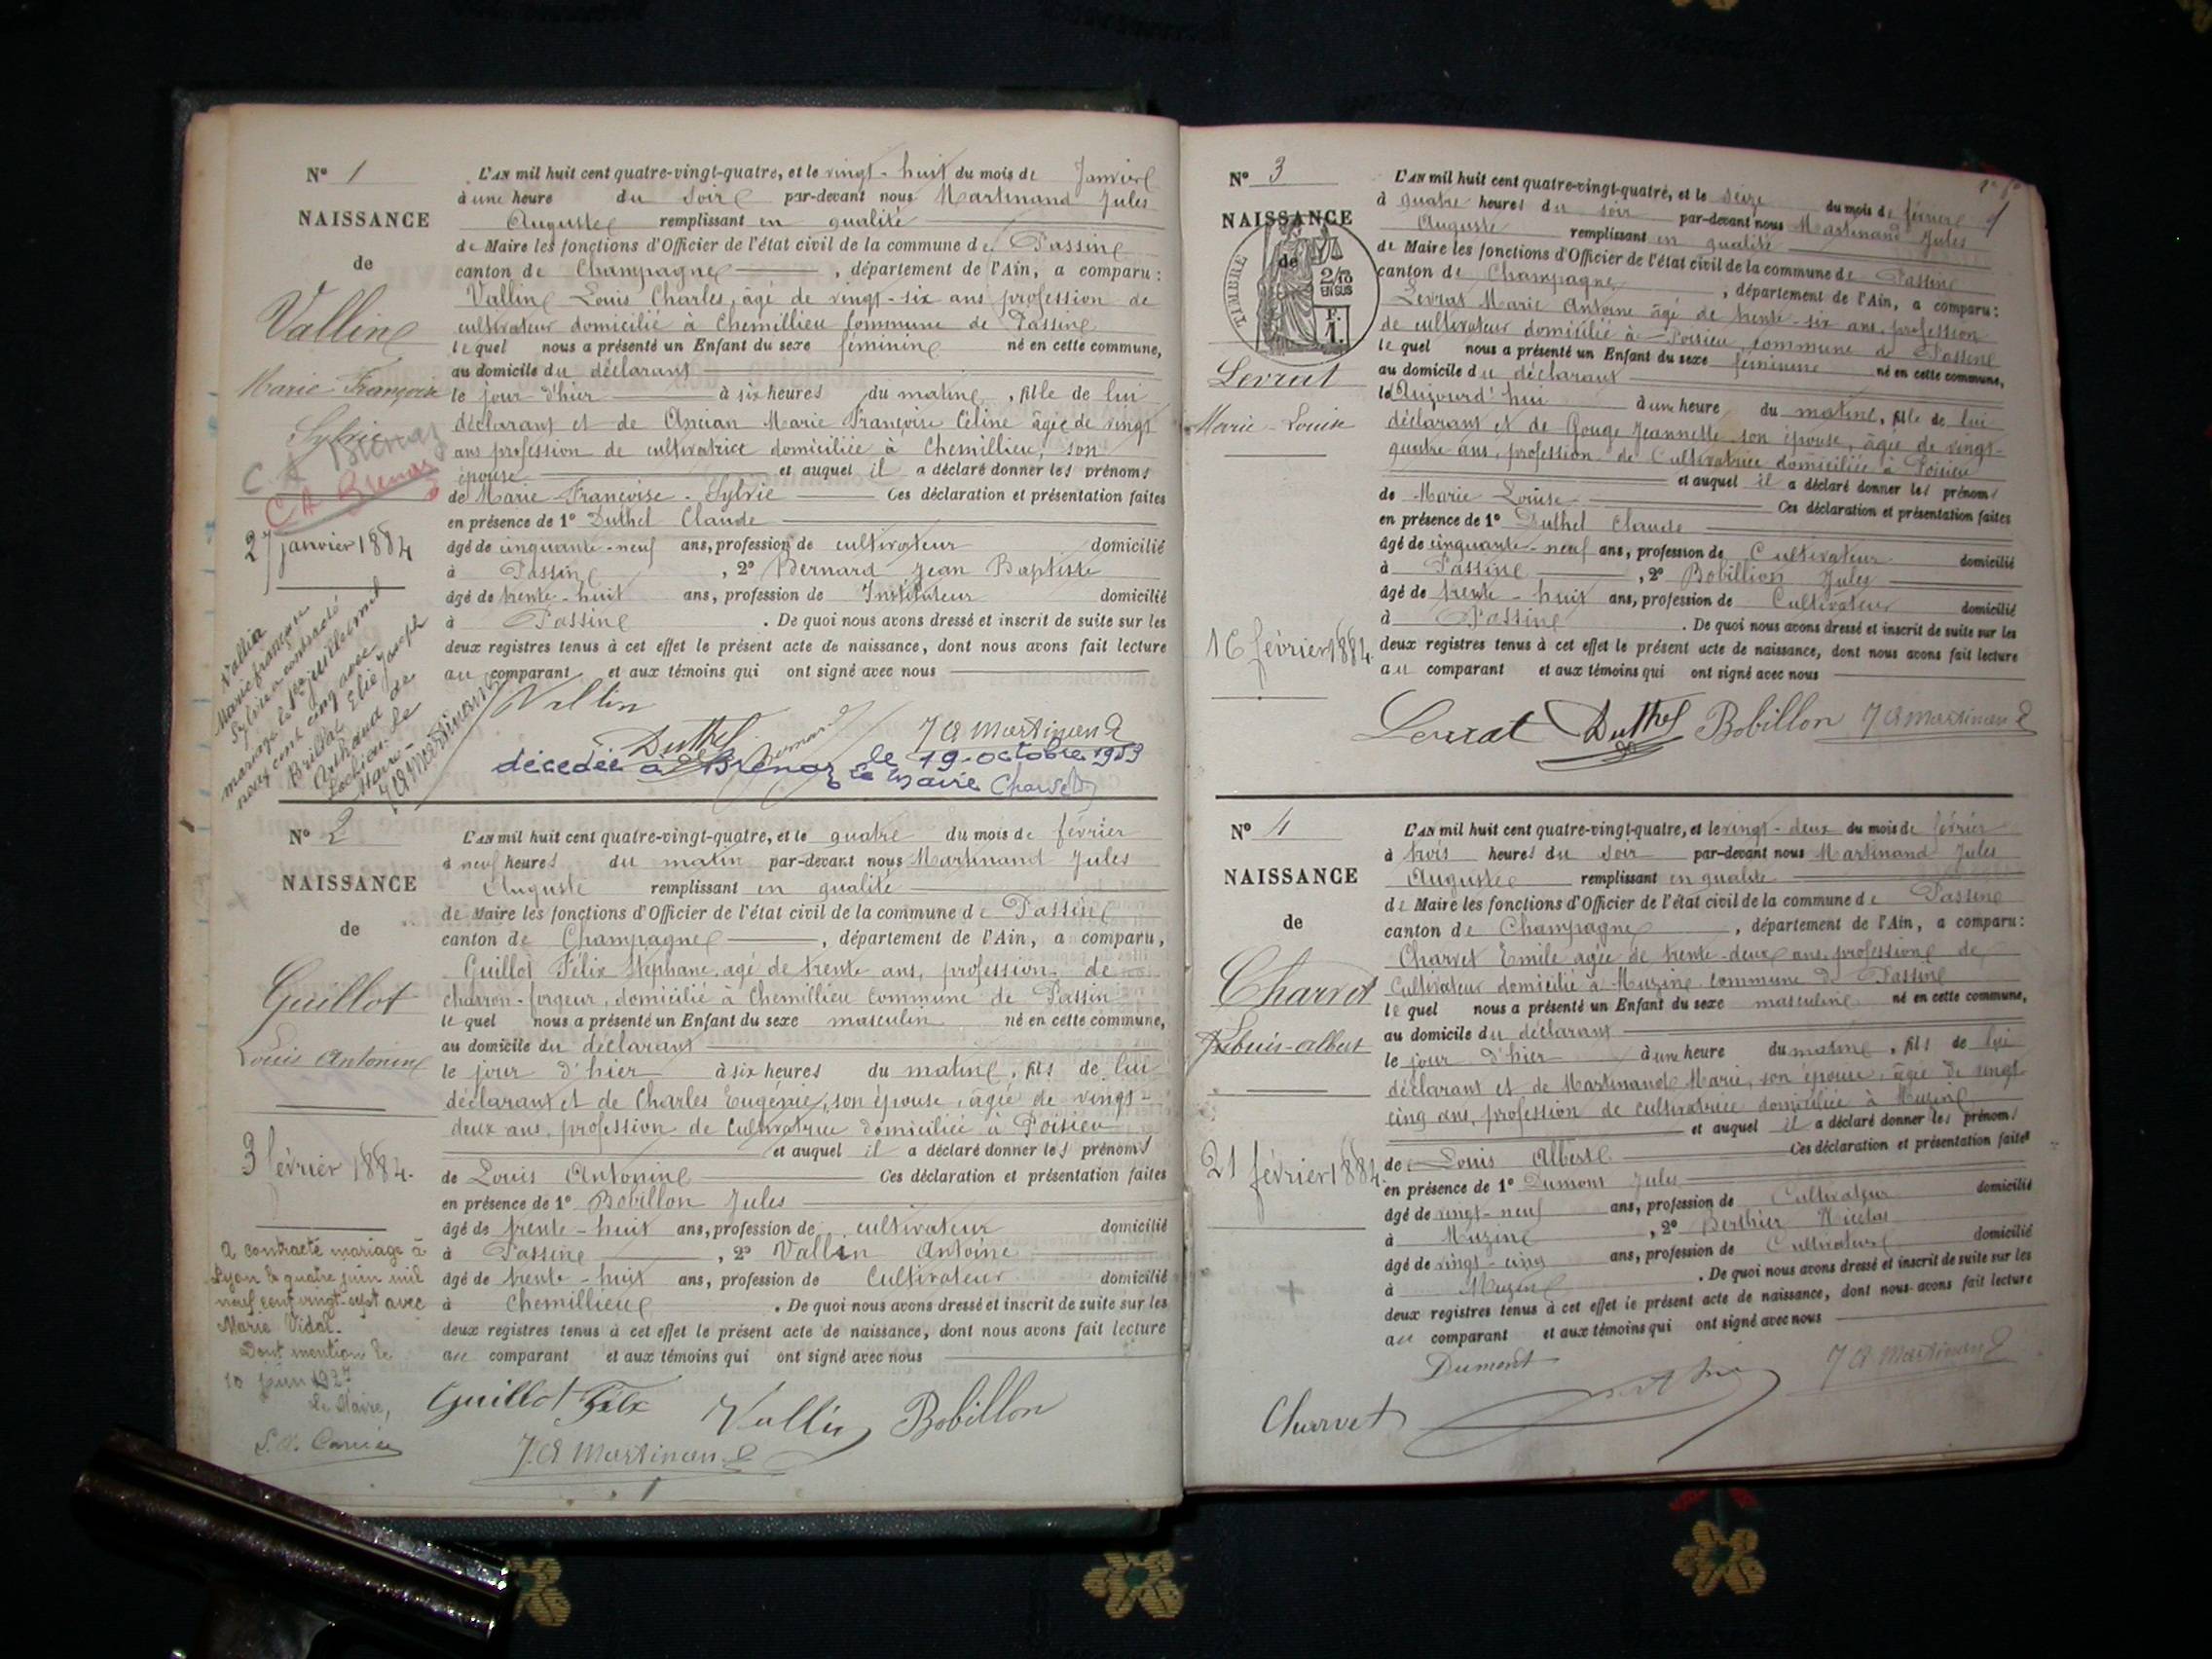 N° 1
NAISSANCE
de
Vallin
Marie-Françoise
Sylvie
C A Brenaz
C A Brenaz
27 janvier 1884
Vallin
Marie françoise
Sylvie a contracté
mariage le juillet mil
neuf cent cinq avec
Brillat Elie Joseph
Arthaud de
Lochieu. Le
Maire
J A Martinand
L'AN mil huit cent quatre-vingt-quatre, et le vingt-huit du mois de Janvier
à une heure du soir par-devant nous Martinand Jules
Auguste remplissant en qualité
de Maire les fonctions d'Officier de l'état civil de la commune de Passin
canton de Champagne, département de l'Ain, a comparu:
Vallin Louis Charles, âgé de vingt-six ans profession de
cultivateur domicilié à Chemillieu commune de Passin
lequel nous a présenté un Enfant du sexe féminin né en cette commune,
au domicile du déclarant
le jour d'hier à six heures du matin, fille de lui
déclarant et de Ancian Marie Françoise Céline âgée de vingt
ans profession de cultivatrice domiciliée à Chemillieu, son
épouse et auquel il a déclaré donner les prénoms
de Marie-Françoise-Sylvie Ces déclaration et présentation faites
en présence de 1° Duthel Claude
âgé de cinquante-neuf ans, profession de cultivateur domicilié
à Passin, 2° Bernard Jean Baptiste
âgé de trente-huit ans, profession de Instituteur domicilié
à Passin. De quoi nous avons dressé et inscrit de suite sur les
deux registres tenus à cet effet le présent acte de naissance, dont nous avons fait lecture
au comparant et aux témoins qui ont signé avec nous
Vallin
Duthel J A Martinand
décédée à Brénaz le 19 octobre 1953
le maire Charvet
N° 2
NAISSANCE
de
Guillot
Louis Antonin
3 février 1884.
A contracté mariage à
Lyon le quatre juin mil
neuf cent vingt-sept avec
Marie Vidal.
Dont mention le
10 juin 1927
Le Maire,
L'AN mil huit cent quatre-vingt-quatre, et le quatre du mois de février
à neuf heures du matin par-devant nous Martinand Jules
Auguste remplissant en qualité
de Maire les fonctions d'Officier de l'état civil de la commune de Passin
canton de Champagne, département de l'Ain, a comparu,
Guillot Félix Stéphane, agé de trente ans, profession de
charron-forgeur, domicilié à Chemillieu commune de Passin
lequel nous a présenté un Enfant du sexe masculin né en cette commune,
au domicile du déclarant
le jour d'hier à six heures du matin, fils de lui
déclarant et de Charles Eugénie, son épouse, âgée de vingt-
deux ans, profession de cultivatrice domiciliée à Poisieu
et auquel il a déclaré donner les prénoms
de Louis Antonin Ces déclaration et présentation faites
en présence de 1° Bobillon Jules
âgé de trente-huit ans, profession de cultivateur domicilié
à Passin, 2° Vallin Antoine
âgé de trente-huit ans, profession de Cultivateur domicilié
à Chemillieu. De quoi nous avons dressé et inscrit de suite sur les
deux registres tenus à cet effet le présent acte de naissance, dont nous avons fait lecture
au comparant et aux témoins qui ont signé avec nous
Guillot Félix Vallin Bobillon
J. A Martinand
N° 3
NAISSANCE
de
TIMBRE
2/10
EN SUS
F.
1.
Levrat
Marie-Louise
16 février 1884.
L'AN mil huit cent quatre-vingt-quatre, et le seize du mois de février
à quatre heures du soir par-devant nous Martinand Jules
Auguste remplissant en qualité
de Maire les fonctions d'Officier de l'état civil de la commune de Passin
canton de Champagne, département de l'Ain, a comparu:
Levrat Marie Antoine âgé de trente-six ans, profession
de cultivateur domicilié à Poisieu commune de Passin
lequel nous a présenté un Enfant du sexe féminin né en cette commune,
au domicile du déclarant
le Aujourd'hui à une heure du matin, fille de lui
déclarant et de Gouge Jeannette son épouse, âgée de vingt-
quatre ans, profession de Cultivatrice domiciliée à Poisieu
et auquel il a déclaré donner les prénoms
de Marie Louise Ces déclaration et présentation faites
en présence de 1° Duthel Claude
âgé de cinquante-neuf ans, profession de Cultivateur domicilié
à Passin, 2° Bobillion Jules
âgé de trente-huit ans, profession de Cultivateur domicilié
à Passin. De quoi nous avons dressé et inscrit de suite sur les
deux registres tenus à cet effet le présent acte de naissance, dont nous avons fait lecture
au comparant et aux témoins qui ont signé avec nous
Levrat Duthel Bobillon J A Martinand
N° 4
NAISSANCE
de
Charvet
Louis-albert
21 février 1884.
L'AN mil huit cent quatre-vingt-quatre, et le vingt-deux du mois de février
à trois heures du soir par-devant nous Martinand Jules
Auguste remplissant en qualité
de Maire les fonctions d'Officier de l'état civil de la commune de Passin
canton de Champagne, département de l'Ain, a comparu:
Charvet Emile agée de trente-deux ans, profession de
Cultivateur domicilié à Muzin commune de Passin
lequel nous a présenté un Enfant du sexe masculin né en cette commune,
au domicile du déclarant
le jour d'hier à une heure du matin, fils de lui
déclarant et de Martinand Marie, son épouse, âgée de vingt
cinq ans, profession de cultivatrice domiciliée à Muzin
et auquel il a déclaré donner les prénoms
de Louis Albert Ces déclaration et présentation faites
en présence de 1° Dumont Jules
âgé de vingt-neuf ans, profession de Cultivateur domicilié
à Muzin, 2° Berthier Nicolas
âgé de vingt-cinq ans, profession de Cultivateur domicilié
à Muzin. De quoi nous avons dressé et inscrit de suite sur les
deux registres tenus à cet effet le présent acte de naissance, dont nous avons fait lecture
au comparant et aux témoins qui ont signé avec nous
Dumont J A Martinand
Charvet